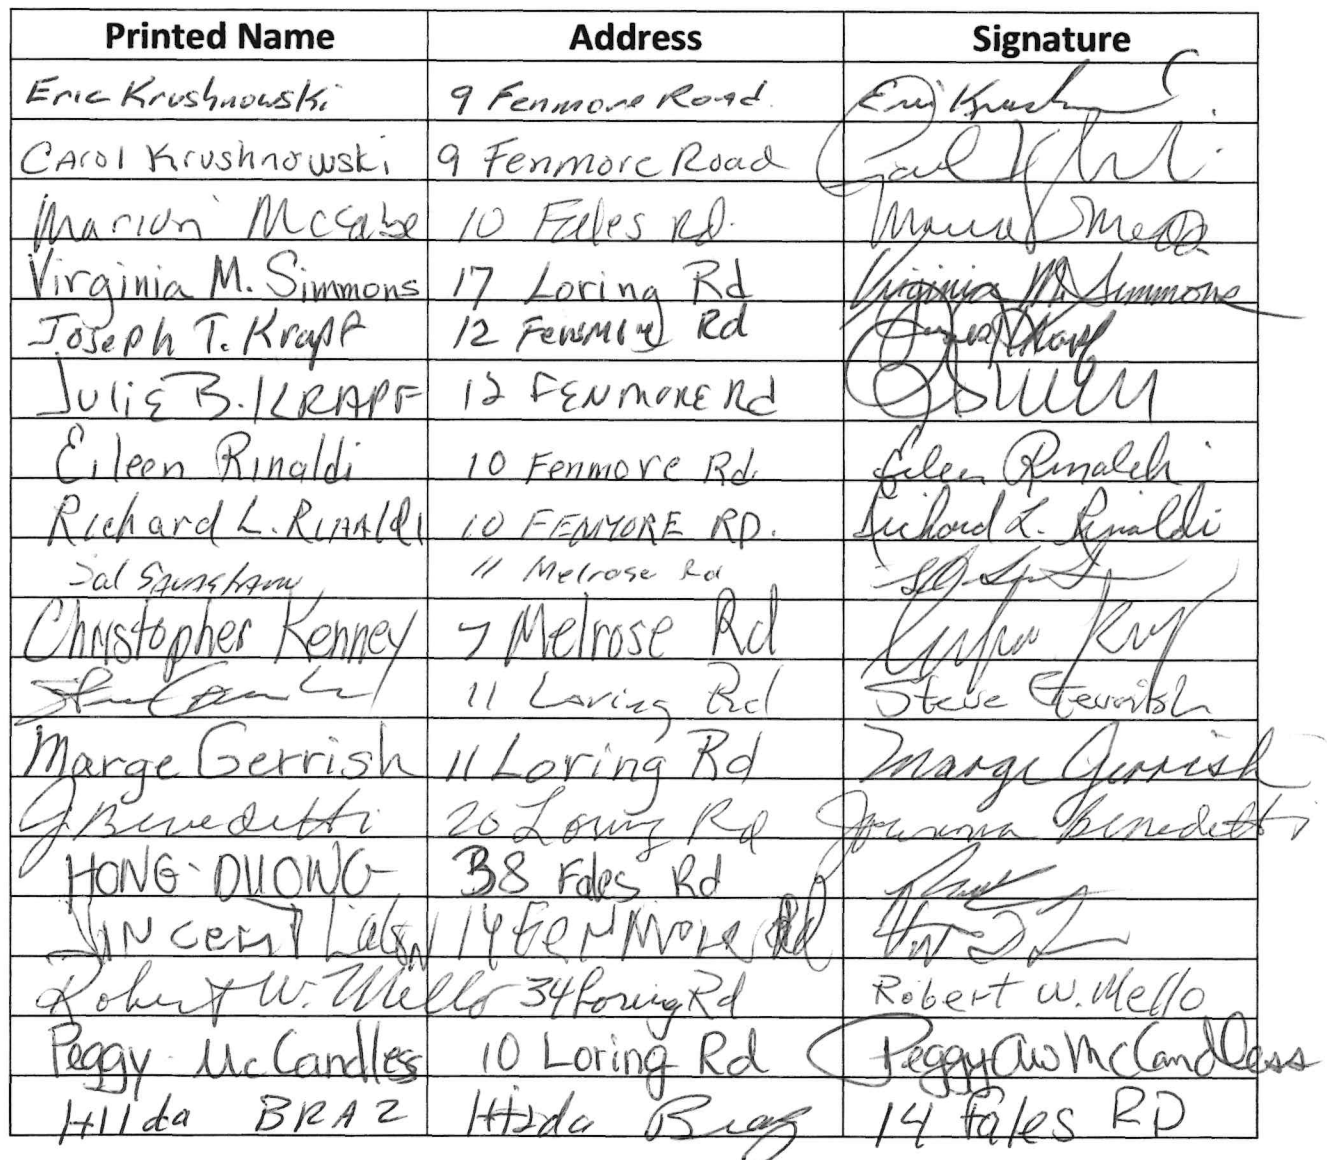 Printed Name Address Signature
Eric Krushnowski 9 Fenmore Road. Eric Krushnowski
CAROl Krushnowski 9 Fenmore Road Carol
Marion McCabe 10 Fales Rd.
Virginia M. Simmons 17 Loring Rd Virginia M. Simmons
Joseph T. Krapf 12 Fenmore Rd
Julie B. KRAPF 12 FENMORE Rd
Eileen Rinaldi 10 Fenmore Rd. Eileen Rinaldi
Richard L. Rinaldi 10 FENMORE RD. Richard L. Rinaldi
Sal 11 Melrose Rd
Christopher Kenney 7 Melrose Rd
11 Loring Rd Steve Gerrish
Marge Gerrish 11 Loring Rd Marge Gerrish
J. Benedetti 20 Loring Rd Benedetti
HONG DUONG 38 Fales Rd
Vincent 14 FENMORE Rd
Robert W. Mello 34 Loring Rd Robert W. Mello
Peggy McCandless 10 Loring Rd Peggy McCandless
HIlda BRAZ Hilda Braz 14 Fales RD